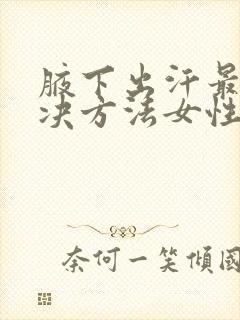 腋下出汗最
决方法女性
奈何一笑倾國